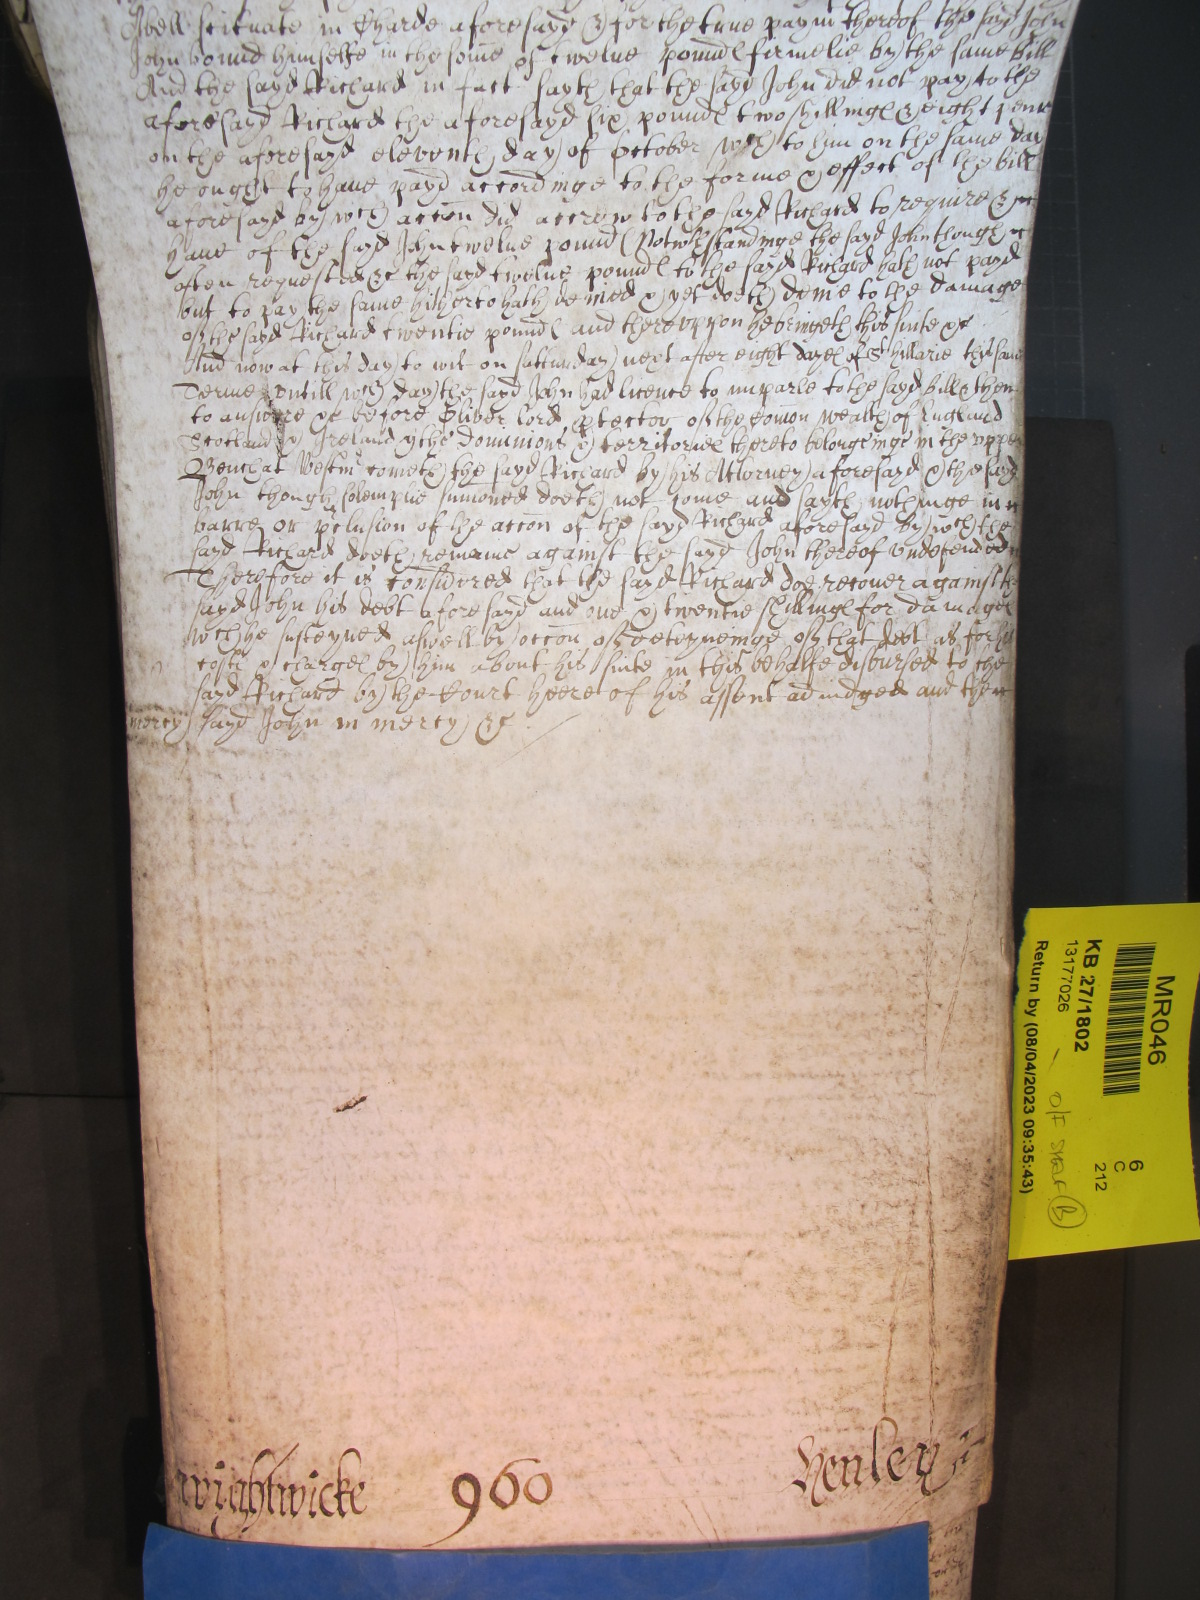 Abell scituate in Charde aforesayd & for the true paymt thereof the sayd John
John bound himselfe in the some of twelue pound firmelie by the same bill
And the sayd Richard in fact sayth that the sayd John did not pay to the
aforesayd Richard the aforesayd six pound two shilling & eight pence
on the aforesayd eleventh day of October wch to him on the same day
he ought to haue payd accordinge to the forme & effect of the bill
aforesayd by wch accon did accrew to the sayd Richard to require &
haue of the sayd John twelue pound Notwthstandinge the sayd John though
often requested &c the sayd twelue pound to the sayd Richard hath not payd
but to pay the same hitherto hath denied & yet doeth denie to the damage
of the sayd Richard twentie pound and therevppon he bringeth this suite &c
And now at this day to wit on Satturday next after eight dayes of St Hillarie this same
Terme vntill wch day the sayd John had licence to imparle to the sayd bill & then
to answere &c before Oliver Lord Protector of the Comon wealth of England
Scotland & Ireland & the dominions & territories thereto belonginge in the vpper
Bench at Westm cometh the sayd Richard by his Attorney aforesayd & the sayd
John though solemplie sumoned doeth not come and sayth nothinge in
barre or pclusion of the accon of the sayd Richard aforesayd by wch the
sayd Richard doeth remaine against the sayd John thereof vndefended
Therefore it is considered that the sayd Richard doe recouer against the
sayd John his debt aforesayd and one & twentie shilling for damages
wch he susteyned aswell by occon of deteyneinge of that debt as for his
costs & charges by him about his suite in this behalfe disbursed to the
sayd Richard by the Court heere of his assent adiudged and the
mercy sayd John in mercy &c
wightwicke 960 Henley
MR046
KB 27/1802
13177026
6
C
212
O/F SHELF B
Return by (08/04/2023 09:35:43)